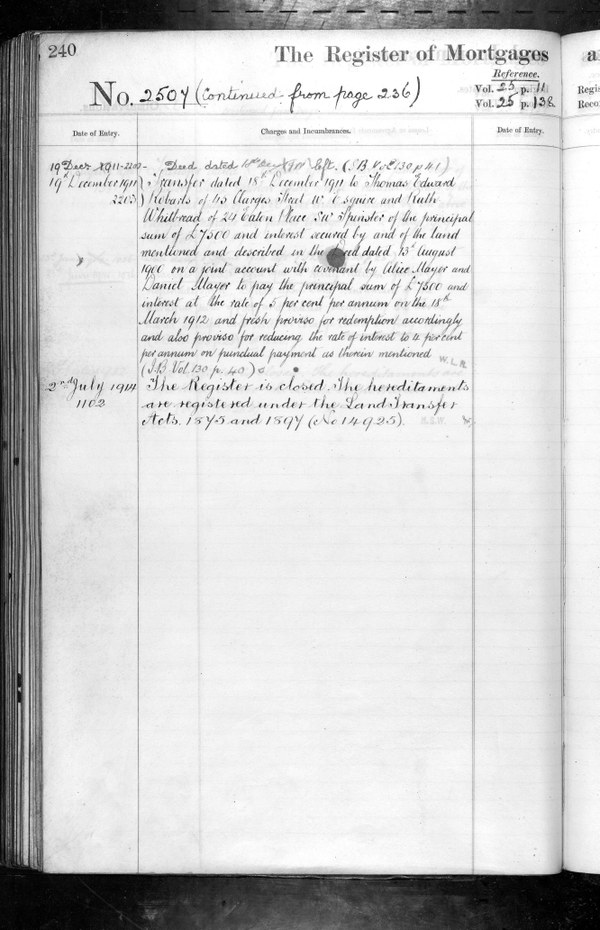 240
The Register of Mortgages
No. 2507 (Continued from page 236)
Reference.
Vol. 25 p. 11
Vol. 25 p. 138
Date of Entry.
Charges and Incumbrances.
Date of Entry.
19th Decr 1911 - 2202 - Deed dated (I.B Vol 130 p 41)
19th December 1911 Transfer dated 18th December 1911 to Thomas Edward
2203 Robarts of 43 Clarges Street W. Esquire and Ruth
Whitbread of 24 Eaton Place S.W. Spinster of the principal
sum of £7500 and interest secured by and of the land
mentioned and described in the Deed dated 13th August
1900 on a joint account with covenant by Alice Mayer and
Daniel Mayer to pay the principal sum of £7500 and
interest at the rate of 5 per cent per annum on the 18th
March 1912 and fresh proviso for redemption accordingly
and also proviso for reducing the rate of interest to 4 per cent
per annum on punctual payment as therein mentioned
(I.B Vol. 130 p. 40)
2nd July 1914 The Register is closed. The hereditaments
1102 are registered under the Land Transfer
Acts. 1875 and 1897 (No 14925).
a
Regis
Reco